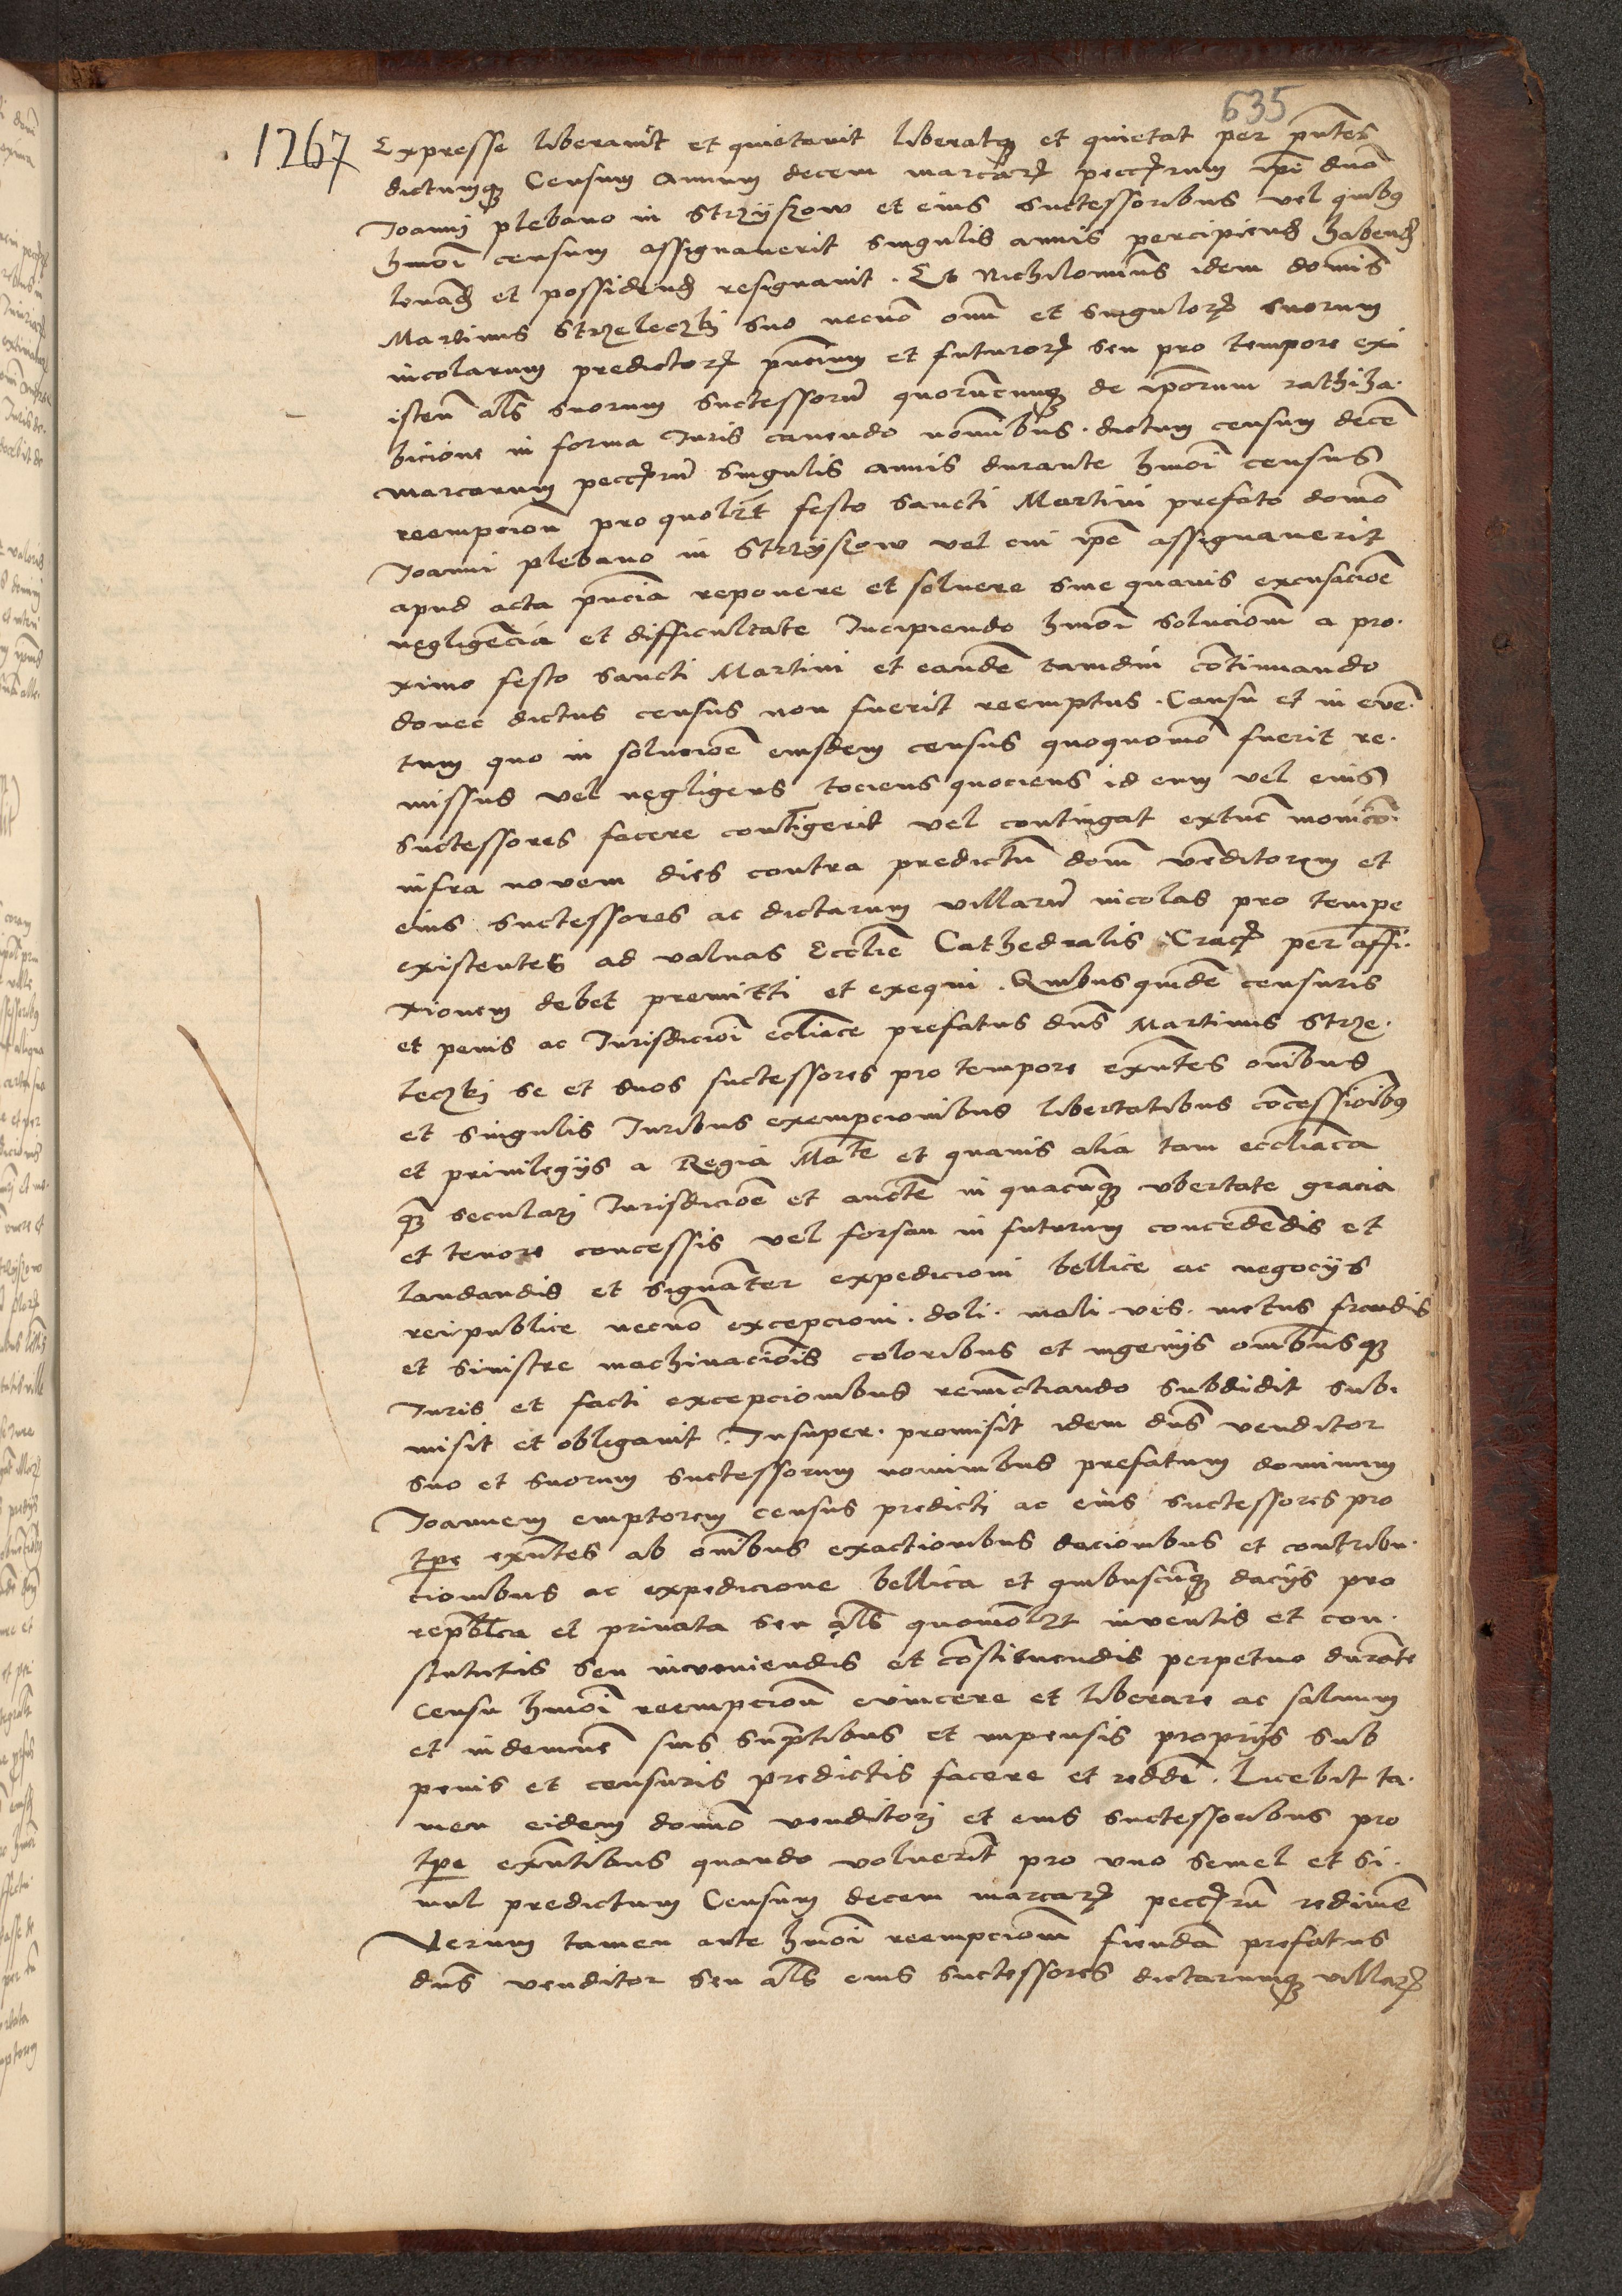 635
1267
Expresse liberavit et quietavit liberatq et quietat per pntes
dictumq Censum annuum decem marcar pecc rum ipi dno
Joanni plebano in Strzyszow et eius successoribus vel quibus
hmoi censum assignaverit singulis annis percipiend habend
levand et possidend resignavit. Et Nichilominus idem dominus
Martinus Strzeleczki suo necno omn et singulor suorum
incolarum predictor pncium et futuror seu pro tempore exi
isten als suorum successoru quorucunq de iporum rathiha.
bicione in forma Juris cavendo nominibus. dictum censum dece
marcarum pecc ru singulis annis durante hmoi census
reempcion pro quolzt festo Sancti Martini prefato domo
Joanni plebano in Strzyszow vel cui ipe assignaverit
apud acta pncia reponere et solvere sine quavis excusacioe
negligencia et difficultate Incipiendo hmoi solucion a pro.
ximo festo Sancti Martini et eande tamdiu continuando
donec dictus census non fuerit reemptus. Casu et in even.
tum quo in solucioe eiusdem census quoquomo fuerit re.
missus vel negligens tociens quociens id eum vel eius
successores facere contigerit vel contingat extunc monicio.
infra novem dies contra predictu dom venditorem et
eius successores ac dictarum villaru incolas pro tempe
existentes ad valvas Ecclie Cathedralis Crac per affi.
xionem debet premitti et exequi. Quibus quidem censuris
et penis ac Jurisdicioi eccliace prefatus dns Martinus Strze.
leczki se et suos successores pro tempore exntes omibus
et singulis Juribus exempcionibus libertatibus concessioibus
et privilegiis a Regia Mate et quavis alia tam eccliaca
q seculari Jurisdicioe et aucte in quacunq ubertate gracia
et tenore concessis vel forsan in futurum concedendis et
laudandis et signanter expedicioni bellice ac negociis
reipublice necno excepcioni. doli. mali. vis. metus fraudis
et sinistre machinaciois coloribus et ingeniis omibusq
Juris et facti excepcionibus renunctiando subdidit sub.
misit et obligavit. Insuper. promisit idem dns venditor
suo et suorum successorum nominibus prefatum dominum
Joannem emptorem census predicti ac eius successores pro
tpe exntes ab omibus exactionibus dacionibus et contribu.
cionibus ac expedicione bellica et quibuscunq daciis pro
republca et privata seu als quomolzt inventis et con.
stitutis seu inveniendis et constituendis perpetuo durante
censu hmoi reempcion evincere et liberare ac salvum
et indemne suis sumptibus et impensis propriis sub
penis et censuris predictis facere et redde. Licebit ta.
men eidem domno venditori et eius successoribus pro
tpe exntibus quando voluerit pro uno semel et si.
mul predictum Censum decem marcar pecc ru redimere
Verum tamen ante hmoi reempcionem fienda prefatus
dns venditor seu als eius successores dictarumq villar